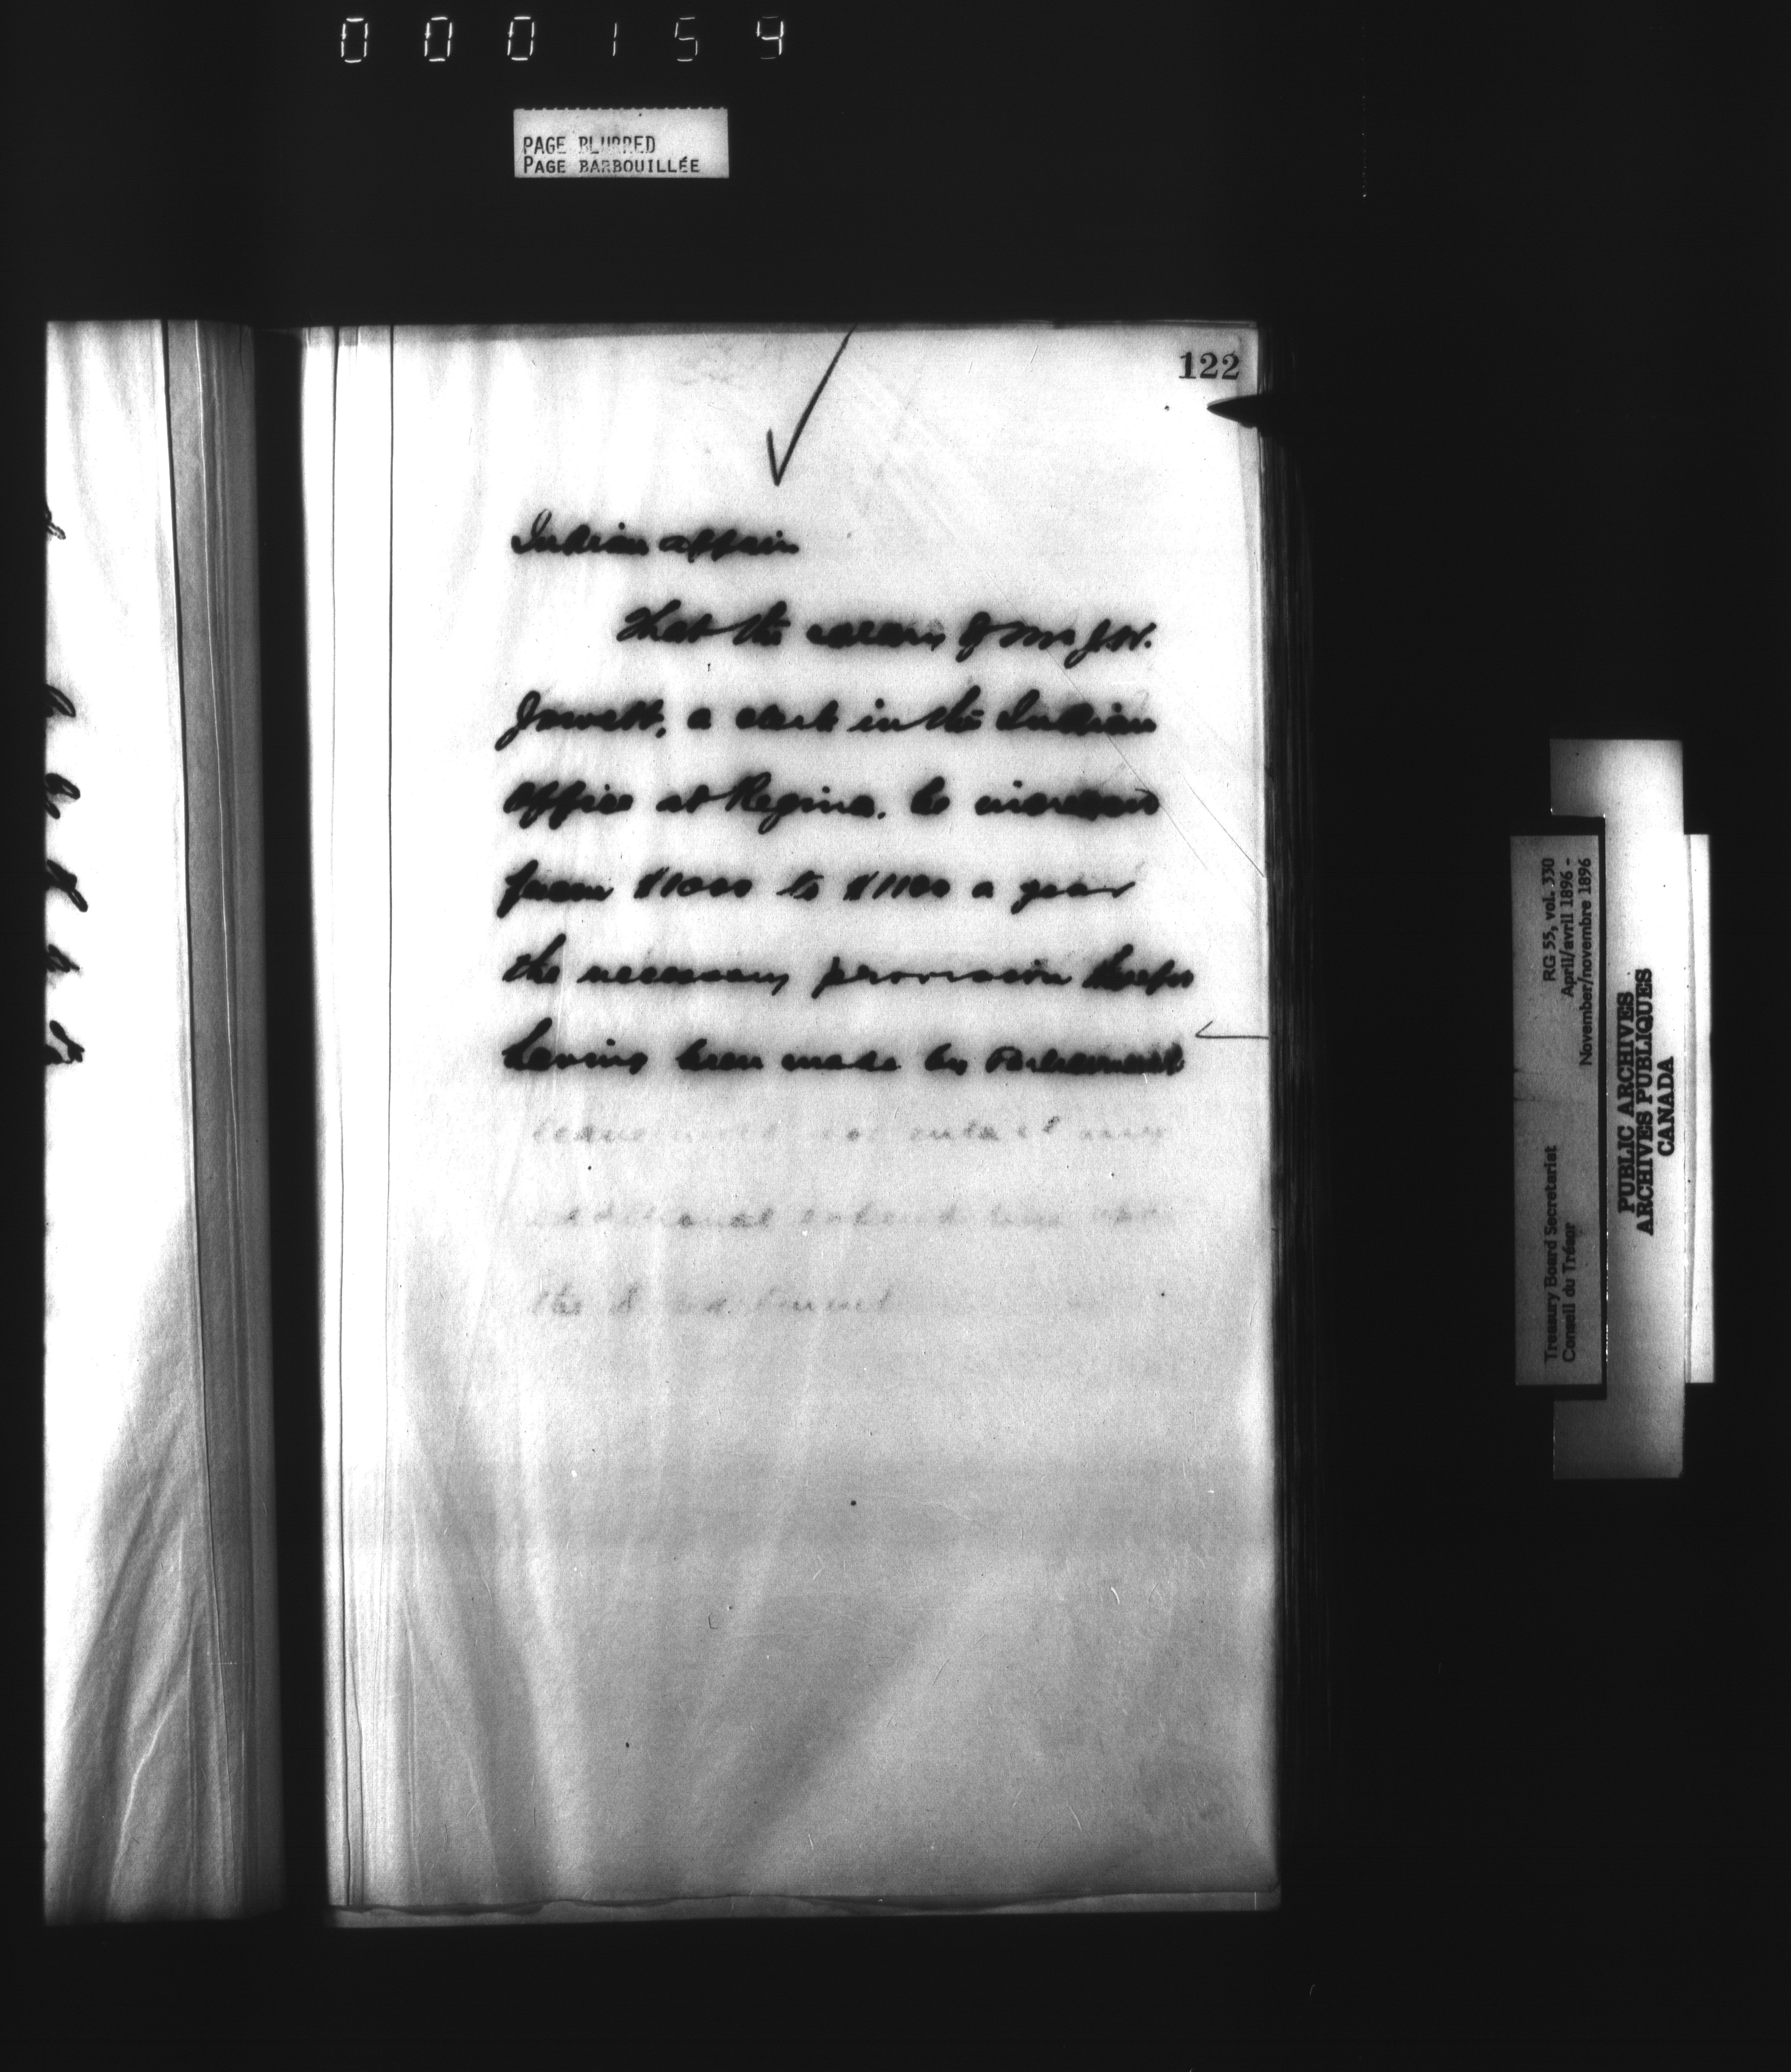 000154
PAGE BLURRED
PAGE BARBOUILLÉE
122
Indian affairs
That the salary of Mr J.W.
Jowett, a clerk in the Indian
Office at Regina, be increased
from $1000 to $1100 a year
the necessary provision therefor
having been made by Parliament.
leave
additional
the
RG 55, vol. 330
April/avril 1896 -
November/novembre 1896
Treasury Board Secretariat
Conseil du Trésor
PUBLIC ARCHIVES
ARCHIVES PUBLIQUES
CANADA